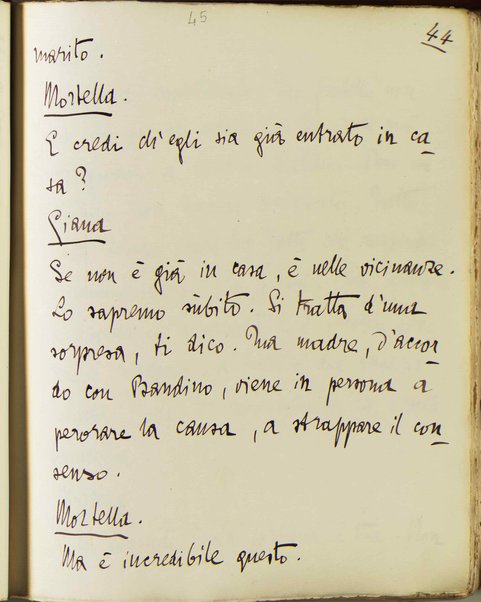 45
44
marito.
Mortella.
E credi ch'egli sia già entrato in ca-
sa?
Giana
Se non è già in casa, è nelle vicinanze.
Lo sapremo sùbito. Si tratta d'una
sorpresa, ti dico. Tua madre, d'accor-
do con Bandino, viene in persona a
perorare la causa, a strappare il con-
senso.
Mortella.
Ma è incredibile questo.